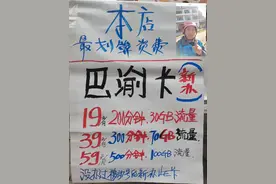 本店
最划算资费
巴渝卡
新办
19元 200分钟.30GB流量
39元 300分钟.70GB流量
59元 500分钟.100GB流量